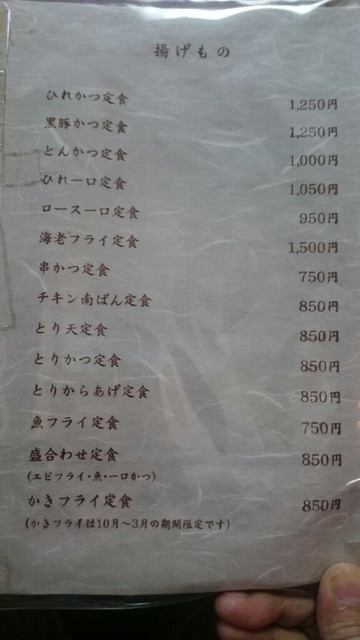 揚げもの
ひれかつ定食 1,250円
黒豚かつ定食 1,250円
とんかつ定食 1,000円
ひれ一口定食 1,050円
ロース一口定食 950円
海老フライ定食 1,500円
串かつ定食 750円
チキン南ばん定食 850円
とり天定食 850円
とりかつ定食 850円
とりからあげ定食 850円
魚フライ定食 750円
盛合わせ定食 850円
(エビフライ・魚・一口かつ)
かきフライ定食 850円
(かきフライは10月～3月の期間限定です)